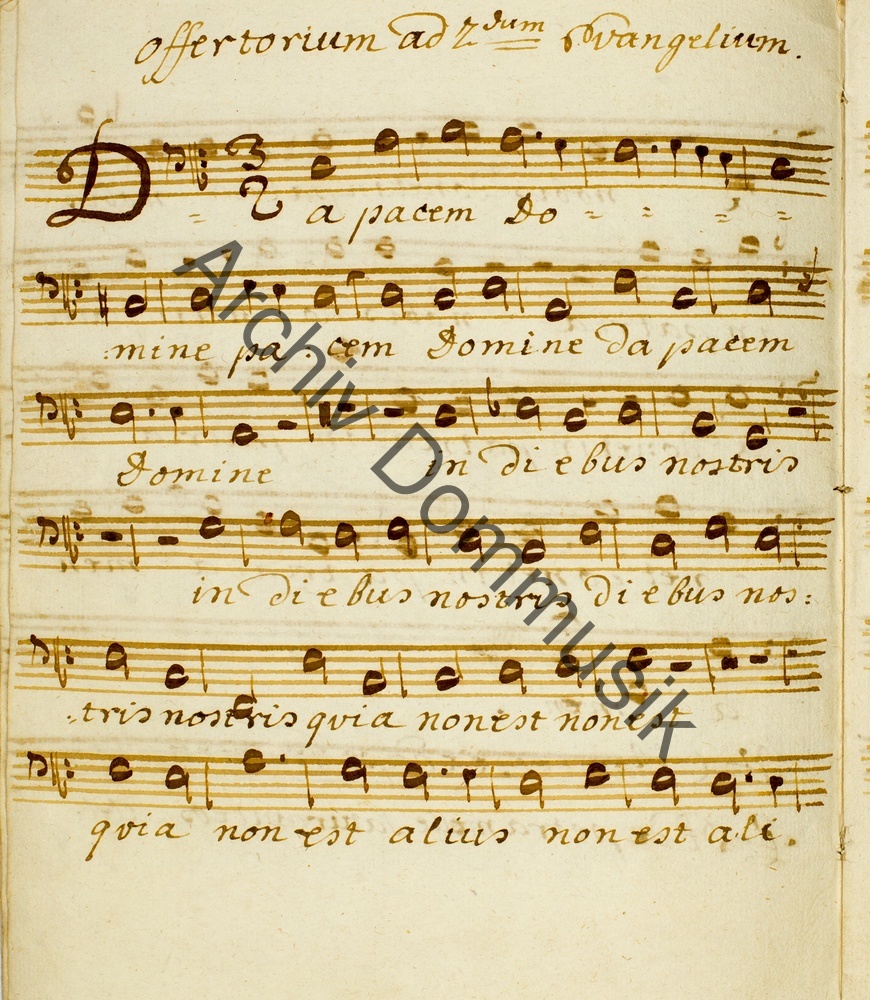 Offertorium ad 2dum Evangelium.
3
2
Da pacem Do - - - -
:mine pa : cem Domine da pacem
Domine in diebus nostris
in diebus nostris diebus nos:
:tris nostris qvia non est non est
qvia non est alius non est ali.
Archiv Dommusik